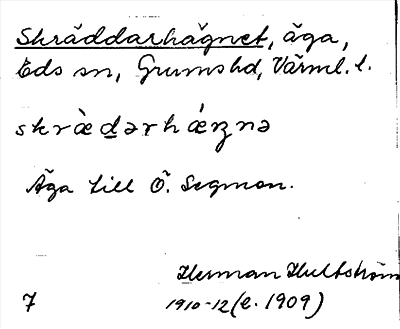 Skräddarhägnet, äga,
Eds sn, Grums hd, Värml. l.
skræ̀dərhǽŋnə
Äga till Ö. Segmon.
Herman Hultström
7 1910-12 (e. 1909)